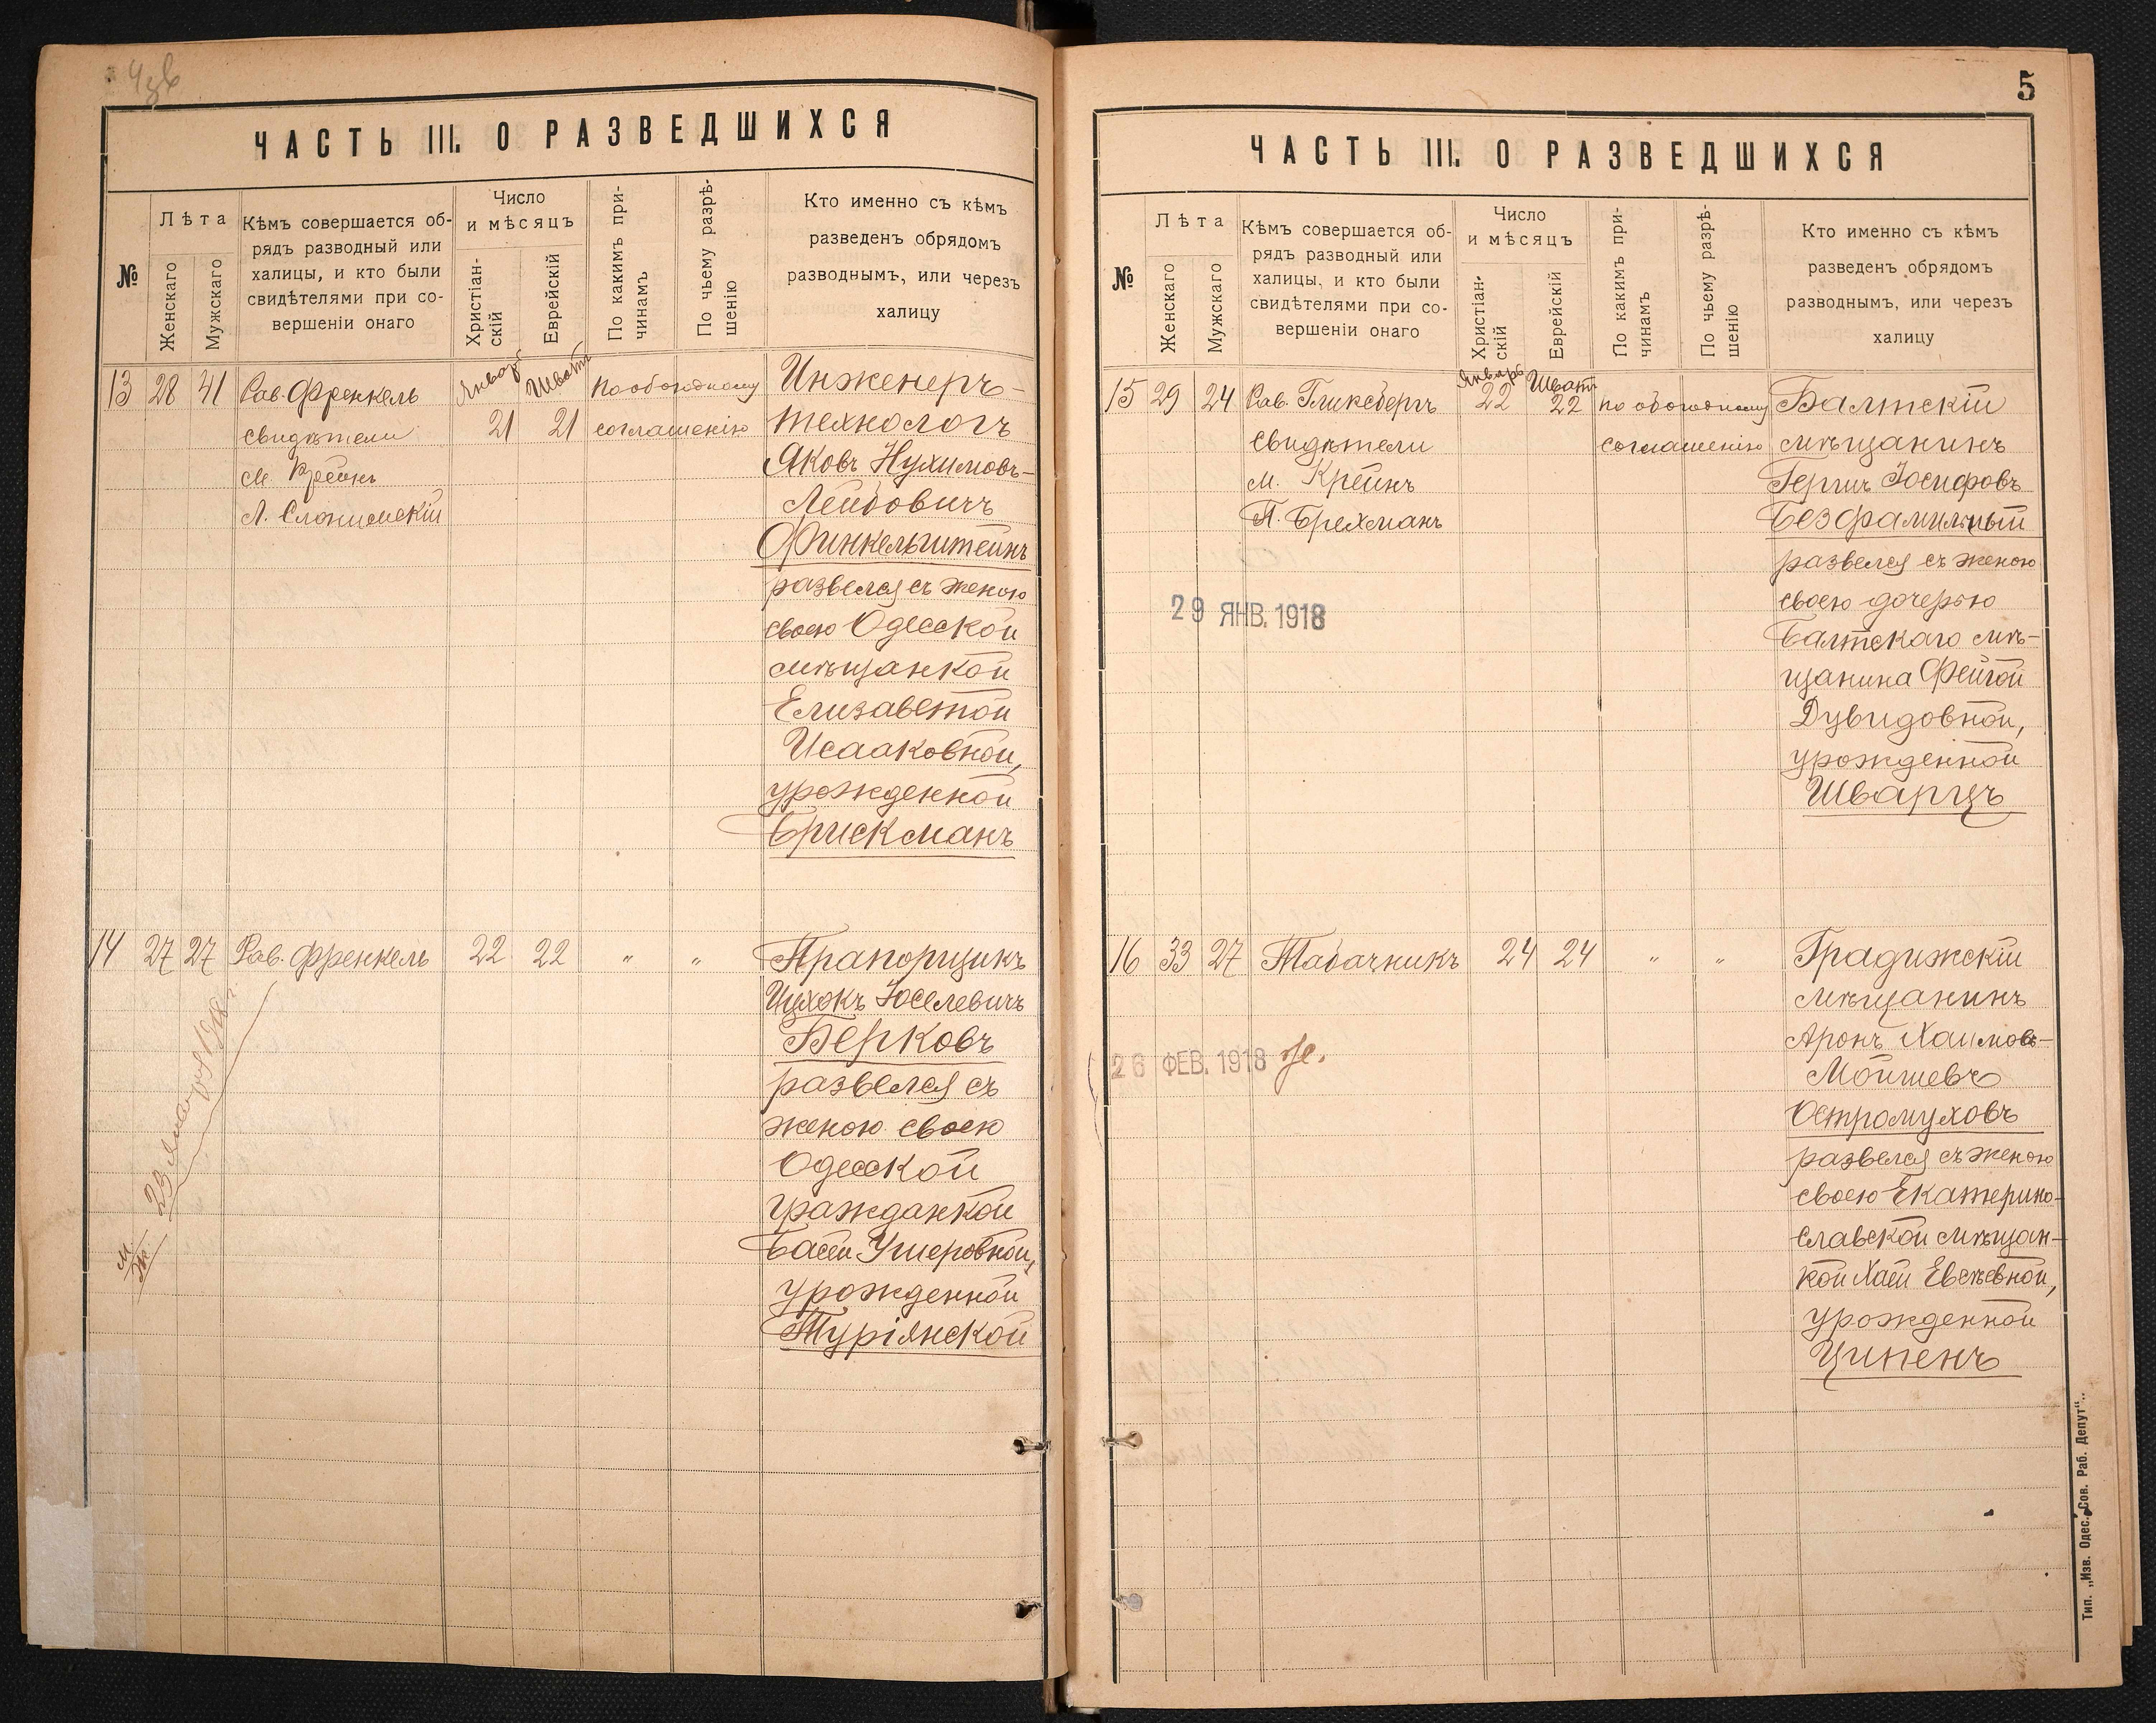 ЧАСТЬ III. О РАЗВЕДШИХСЯ
№
Лѣта
Женскаго
Мужскаго
Кѣмъ совершается об-
рядъ разводный или
халицы, и кто были
свидѣтелями при со-
вершеніи онаго
Число
и мѣсяцъ
Христіан-
скій
Еврейскій
По какимъ при-
чинамъ
По чьему разрѣ-
шенію
Кто именно съ кѣмъ
разведенъ обрядомъ
разводнымъ, или черезъ
халицу
13 28 41 Рав. Френкель
свидѣтели
М. Крейнъ
Л. Слонимскій
Январь 21
Шватъ 21
по обоюдному
соглашенію
Инженеръ-
технологъ
Яковъ Нухимовъ-
Лейбовичъ
Финкельштейнъ
развелся съ женою
своею Одесской
мѣщанкой
Елизаветой
Исааковной,
урожденной
Брискманъ
14 27 27 Рав. Френкель 22 22 " "
Прапорщикъ
Ицхокъ Іоселевичъ
Берковъ
развелся съ
женою своею
Одесской
гражданкой
Басей Ушеровной,
урожденной
Туріянской
М
Ж
29 января 1918 г.
5
ЧАСТЬ III. О РАЗВЕДШИХСЯ
№
Лѣта
Женскаго
Мужскаго
Кѣмъ совершается об-
рядъ разводный или
халицы, и кто были
свидѣтелями при со-
вершеніи онаго
Число
и мѣсяцъ
Христіан-
скій
Еврейскій
По какимъ при-
чинамъ
По чьему разрѣ-
шенію
Кто именно съ кѣмъ
разведенъ обрядомъ
разводнымъ, или черезъ
халицу
15 29 24 Рав. Гликсбергъ
свидѣтели
М. Крейнъ
П. Брехманъ
Январь 22
Шватъ 22
по обоюдному
соглашенію
Балтскій
мѣщанинъ
Гершъ Іосифовъ
Безфамильный
развелся съ женою
своею дочерью
Балтскаго мѣ-
щанина Фейгой
Дувидовной,
урожденной
Шварцъ
29 ЯНВ. 1918
16 33 27 Табачникъ 24 24 " "
Градижскій
мѣщанинъ
Аронъ Хаимовъ-
Мойшевъ
Остромуховъ
развелся съ женою
своею Екатерино-
славской мѣщан-
кой Хасей Евсѣевной,
урожденной
Ципенъ
26 ФЕВ. 1918
Тип. „Изв. Одес. Сов. Раб. Депут".